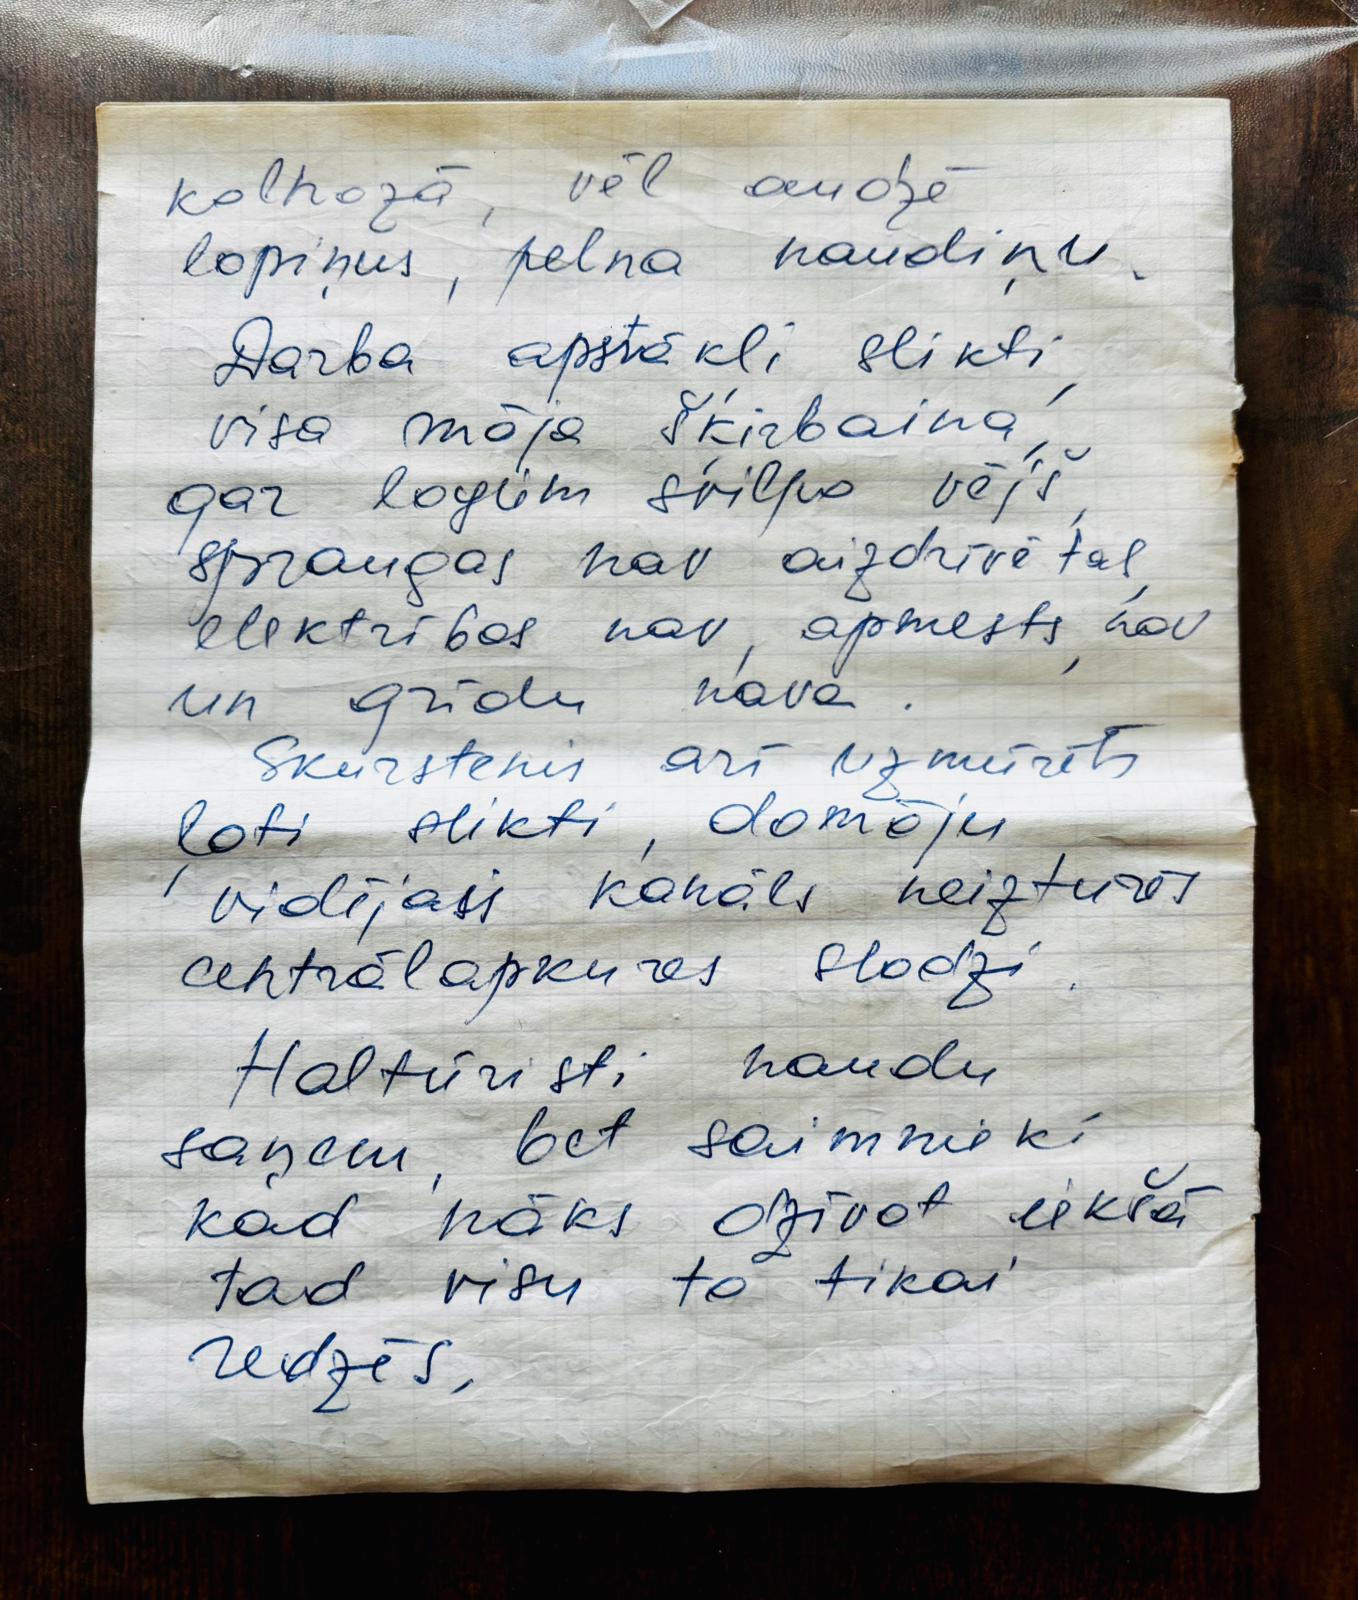 kolhozā, vēl audzē
lopiņus, pelna naudiņu.
Darba apstākli slikti,
visa māja šķirbaina,
gar logiem svilpo vējš,
spraugas nav aizdrīvētas,
elektrības nav, apmests nav
un grīdu nava.
Skurstenis arī uzmūrēts
ļoti slikti, domāju
vidējais kanāls neizturēs
centrālapkures slodzi.
Haltūristi naudu
saņem, bet saimnieki
kad nāks dzīvot iekšā
tad visu to tikai
redzēs,